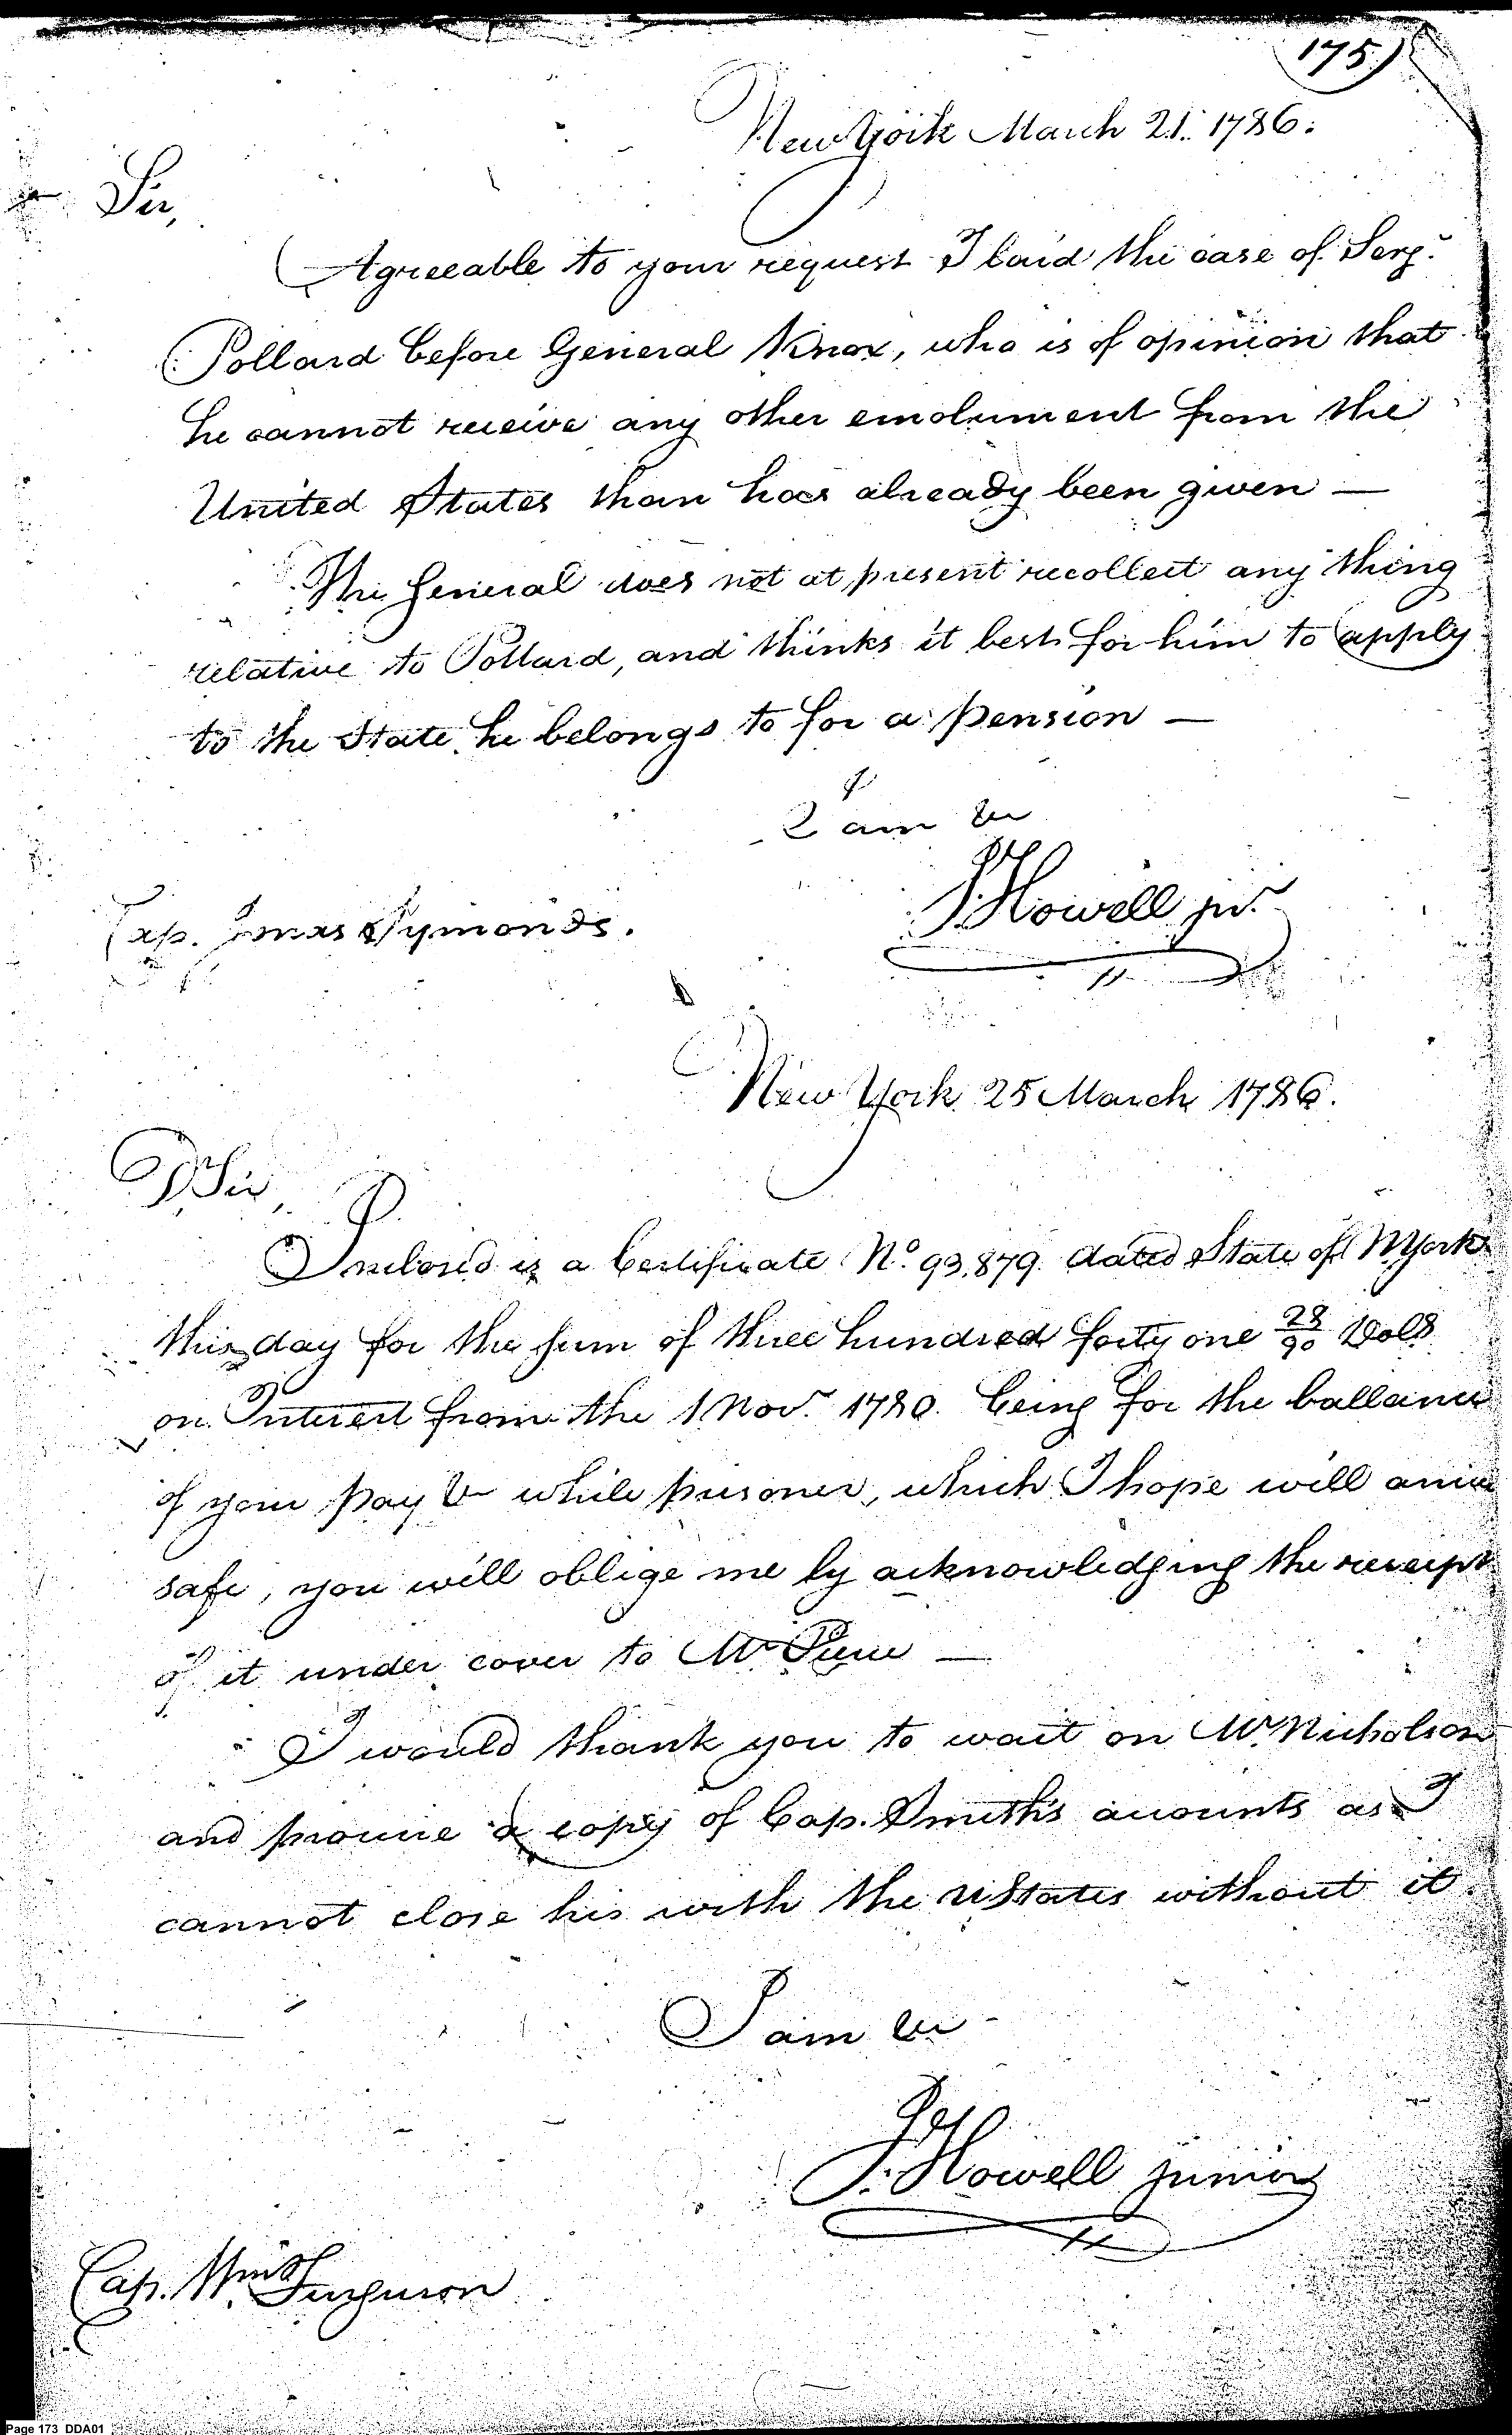 175)
New York March 21. 1786.
Sir,
Agreeable to your request I laid the case of Serg.t
Pollard before General Knox, who is of opinion that
he cannot receive any other emolument from the
United States than has already been given —
The General does not at present recollect any thing
relative to Pollard, and thinks it best for him to apply
to the State he belongs to for a pension —
I am &c
J Howell jr.
Cap. Jonas Symonds.
New York 25 March 1786.
D Sir,
Inclosed is a Certificate No. 93.879 dated State of N York
this day for the sum of three hundred forty one 28/90 Dolls
on Interest from the 1 Nov.r 1780. being for the ballance
of your pay & while prisoner, which I hope will arrive
safe, you will oblige me by acknowledging the receipt
of it under cover to Mr Pierce —
I would thank you to wait on Mr. Nicholson
and procure a copy of Cap. Smith's accounts as I
cannot close his with the U States without it
I am &c
J. Howell junior
Cap. Wm. Ferguson
Page 173 DDA01